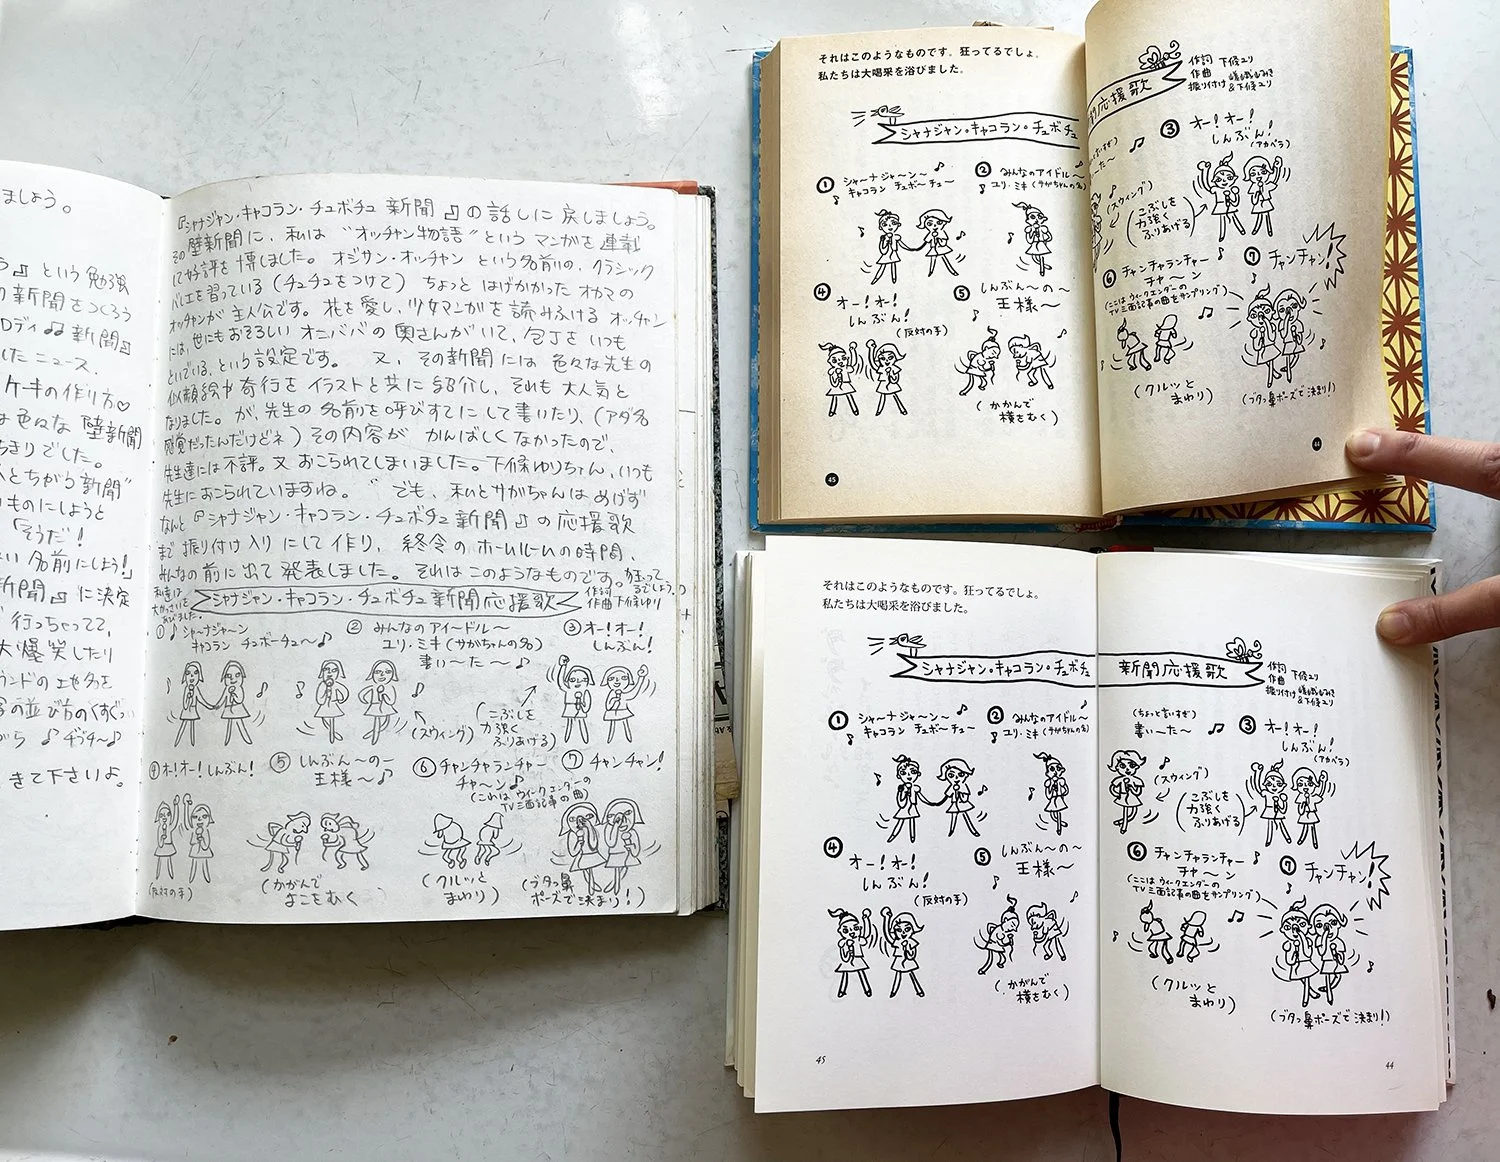 ましょう。
』という勉強
の新聞をつくろう
ロディ♫新聞』
したニュース、
ケーキの作り方♡
は色々な壁新聞
ちきりでした。
とちがう新聞"
ものにしようと
「そうだ!
い名前にしよう!」
新聞』に決定
行っちゃってて、
大爆笑したり
の並び方の
がら♪ヂブチ〜♪
きて下さいよ。
『シャナジャン・キャコラン・チュボチュ新聞』の話しに戻しましょう。
の壁新聞に、私は"オッチャン物語"というマンガを連載
して好評を博しました。オジサン・オッチャンという名前の、クラシック
バレエを習っている(チュチュをつけて)ちょっとはげかかったオカマの
オッチャンが主人公です。花を愛し、少女マンガを読みふけるオッチャン
には、世にもおそろしいオニババの奥さんがいて、包丁をいつも
といでいる、という設定です。又、その新聞には色々な先生の
似顔絵や奇行をイラストと共に紹介し、それも大人気と
なりました。が、先生の名前を呼びすてにして書いたり、(アダ名
感覚だったんだけどネ)その内容がかんばしくなかったので、
先生達には不評。又おこられてしまいました。下條ゆりちゃん、いつも
先生におこられていますね。でも、私とサガちゃんはめげず
なんと『シャナジャン・キャコラン・チュボチュ新聞』の応援歌
まで振り付け入りにして作り、終令のホームルームの時間、
みんなの前に出て発表しました。それはこのようなものです。狂ってるでしょう。
私達は大かっさいをあびました。
シャナジャン・キャコラン・チュボチュ新聞応援歌
作詞
作曲 下條ゆり
① ♪シャーナジャーン
キャコランチュボーチュー〜♪
② みんなのアイドル〜
ユリ・ミキ(サガちゃんの名)
書い〜た〜♪
③ オー!オー!
しんぶん!
(スウィング)
(こぶしを
力強く
ふりあげる)
④ オー!オー!しんぶん!
(反対の手)
⑤ しんぶん〜の〜
王様〜♪
(かがんで
よこをむく
⑥ チャンチャランチャー
チャ〜ン♪
(これはウィークエンダーの
TV三面記事の曲)
(クルッと
まわり)
⑦ チャンチャン!
(ブタっ鼻
ポーズで決まり!)
それはこのようなものです。狂ってるでしょ。
私たちは大喝采を浴びました。
シャナジャン・キャコラン・チュボチュ
応援歌
作詞 下條ユリ
作曲
振り付け 嵯峨みき
&下條ユリ
① シャ〜ナジャ〜ン〜♪
キャコランチュボ〜チュ〜
② みんなのアイドル〜
ユリ・ミキ(サガちゃんの名)
書い〜た〜
(スウィング)
③ オー!オー!
しんぶん!
(アカペラ)
(こぶしを
力強く
ふりあげる)
④ オー!オー!
しんぶん!
(反対の手)
⑤ しんぶん〜の〜
王様〜
(かがんで
横をむく)
⑥ チャンチャランチャー
チャ〜ン
(ここはウィークエンダーの
TV三面記事の曲をサンプリング)
(クルッと
まわり)
⑦ チャンチャン!
(ブタっ鼻ポーズで決まり!)
45
44
それはこのようなものです。狂ってるでしょ。
私たちは大喝采を浴びました。
シャナジャン・キャコラン・チュボチュ 新聞応援歌
作詞 下條ユリ
作曲
振り付け 嵯峨みき
&下條ユリ
① シャ〜ナジャ〜ン〜♪
キャコランチュボ〜チュー
② みんなのアイドル〜
ユリ・ミキ(サガちゃんの名)
(ちょっと言いすぎ)
書い〜た〜 ♫
(スウィング)
③ オー!オー!
しんぶん!
(アカペラ)
(こぶしを
力強く
ふりあげる)
④ オー!オー!
しんぶん!
(反対の手)
⑤ しんぶん〜の〜
王様〜
(かがんで
横をむく)
⑥ チャンチャランチャー
チャ〜ン
(ここはウィークエンダーの
TV三面記事の曲をサンプリング)
(クルッと
まわり)
⑦ チャンチャン!
(ブタっ鼻ポーズで決まり!)
45
44